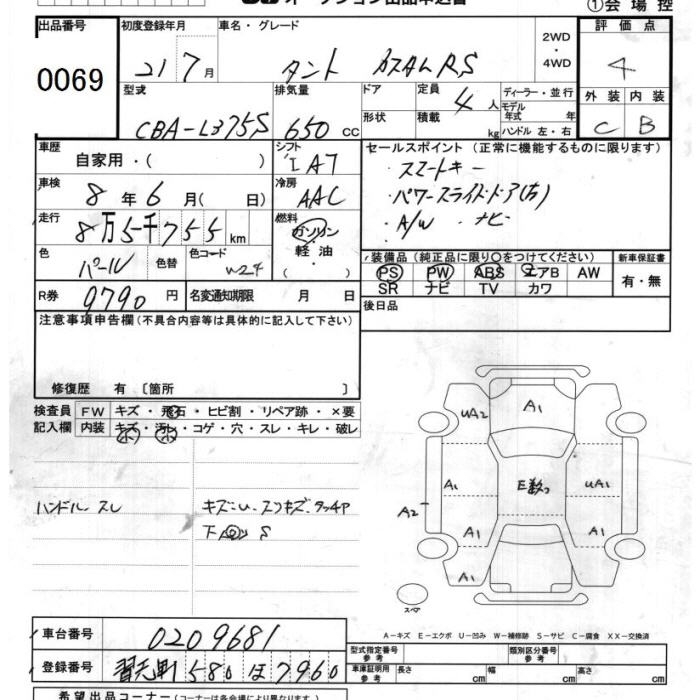 オークション出品申込書
①会場控
出品番号 初度登録年月 車名・グレード 2WD・4WD 評価点
0069 21 7月 タント カスタムRS 4
型式 排気量 ドア 定員 4人 ディーラー・並行 外装 内装
形状 積載 kg モデル年式 年式 ハンドル 左・右
CBA-L375S 650cc C B
車歴 シフト セールスポイント(正常に機能するものに限ります)
自家用・( ) I A7
・スマートキー
車検 8年6月( 日) 冷房 AAC
・パワースライドドア(右)
走行 8万5千755km 燃料 ガソリン
・A/W ・ナビ
軽油
( )
色 パール 色替 色コード W24
装備品(純正品に限り〇をつけてください) 新車保証書
PS PW ABS エアB AW 有・無
SR ナビ TV カワ
R券 9790円 名変通知期限 月 日
後日品
注意事項申告欄(不具合内容等は具体的に記入して下さい)
修復歴 有〔箇所 〕
検査員 FW キズ・飛石・ヒビ割・リペア跡・×要
記入欄 内装 キズ・汚レ・コゲ・穴・スレ・キレ・破レ
UA2 A1
A1 E数 UA1
ハンドルスレ キズ・U・スリキズ・タッチP
A2
下 S
A1 A1
A1
スペア
車台番号 0209681
A-キズ E-エクボ U-凹み W-補修跡 S-サビ C-腐食 XX-交換済
型式指定番号 類別区分番号
登録番号 580 ほ 7960
車庫証明用参考 長さ cm 幅 cm 高さ cm
希望出品コーナー(コーナーは各会場により異なります。)